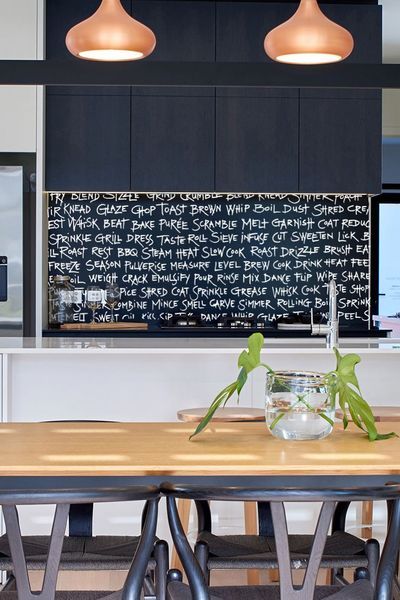 FRY BLEND SIZZLE GRIND CRUMBLE BLEND KNEAD SIMMER POACH
TIR KNEAD GLAZE CHOP TOAST BROWN WHIP BOIL DUST SHRED CREA
EST WHISK BEAT BAKE PURÉE SCRAMBLE MELT GARNISH COAT REDUC
SPRINKLE GRILL DRESS TASTE ROLL SIEVE INFUSE CUT SWEETEN LICK B
LL ROAST REST BBQ STEAM HEAT SLOW COOK ROAST DRIZZLE BRUSH EA
FREEZE SEASON PULVERISE MEASURE LEVEL BREW COOK DRINK HEAT FEE
OIL WEIGH CRACK EMULSIFY POUR RINSE MIX DANCE TIP WIPE SHARE
SPICE SHRED COAT SPRINKLE GREASE WHISK COOK TASTE SHOP
COMBINE MINCE SMELL CARVE SIMMER ROLLING BOIL SPRINK
MELT